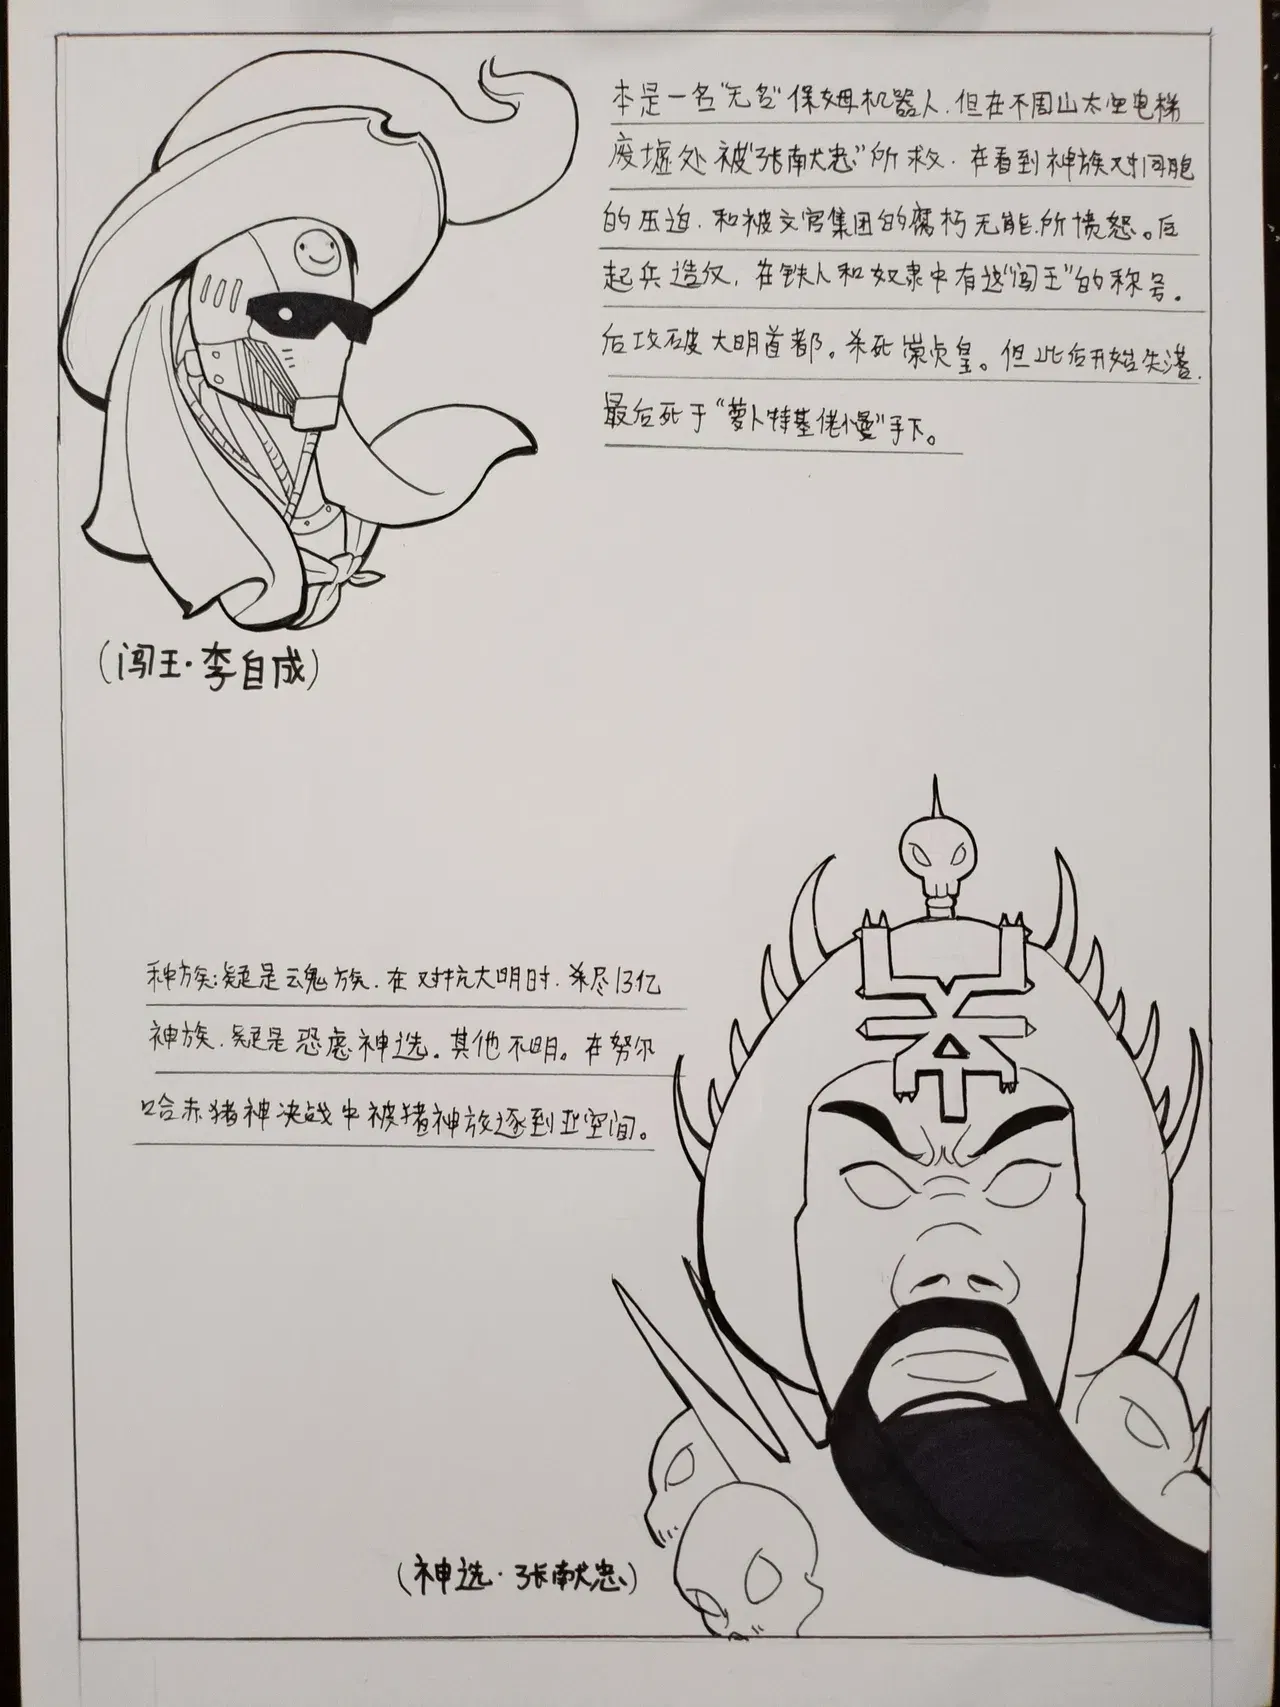 本是一名"无名"保姆机器人.但在不周山太空电梯
废墟处被"张献忠"所救.在看到神族对同胞
的压迫.和被文官集团的腐朽无能.所愤怒。后
起兵造反,在铁人和奴隶中有这"闯王"的称号.
后攻破大明首都。杀死崇贞皇。但此后开始失
最后死于"萝卜特基佬慢"手下。
(闯王·李自成)
种族:疑是云魂族.在对抗大明时.杀尽13亿
神族.疑是恐虐神选。其他不明。在努尔
哈赤猪神决战中被猪神放逐到亚空间。
(神选·张献忠)